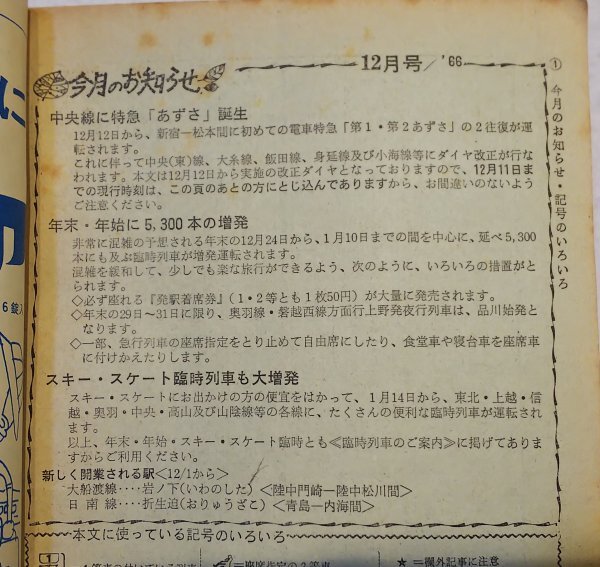 今月のお知らせ
12月号/'66
中央線に特急「あずさ」誕生
12月12日から、新宿―松本間に初めての電車特急「第1・第2あずさ」の2往復が運
転されます。
これに伴って中央(東)線、大糸線、飯田線、身延線及び小海線等にダイヤ改正が行な
われます。本文は12月12日から実施の改正ダイヤとなっておりますので、12月11日ま
での現行時刻は、この頁のあとの方にとじ込んでありますから、お間違いのないよう
ご注意ください。
年末・年始に5,300本の増発
非常に混雑の予想される年末の12月24日から、1月10日までの間を中心に、延べ5,300
本にも及ぶ臨時列車が増発運転されます。
混雑を緩和して、少しでも楽な旅行ができるよう、次のように、いろいろの措置がと
られます。
◇必ず座れる『発駅着席券』(1・2等とも1枚50円)が大量に発売されます。
◇年末の29日~31日に限り、奥羽線・磐越西線方面行上野発夜行列車は、品川始発と
なります。
◇一部、急行列車の座席指定をとり止めて自由席にしたり、食堂車や寝台車を座席車
に付けかえたりします。
スキー・スケート臨時列車も大増発
スキー・スケートにお出かけの方の便宜をはかって、1月14日から、東北・上越・信
越・奥羽・中央・高山及び山陰線等の各線に、たくさんの便利な臨時列車が運転され
ます。
以上、年末・年始・スキー・スケート臨時とも≪臨時列車のご案内≫に掲げてありま
すからご利用ください。
新しく開業される駅<12/1から>
大船渡線‥‥岩ノ下(いわのした)<陸中門崎―陸中松川間>
日南線‥‥折生迫(おりゅうざこ)<青島―内海間>
本文に使っている記号のいろいろ
★=欄外記事に注意
① 今月のお知らせ・記号のいろいろ
6錠入